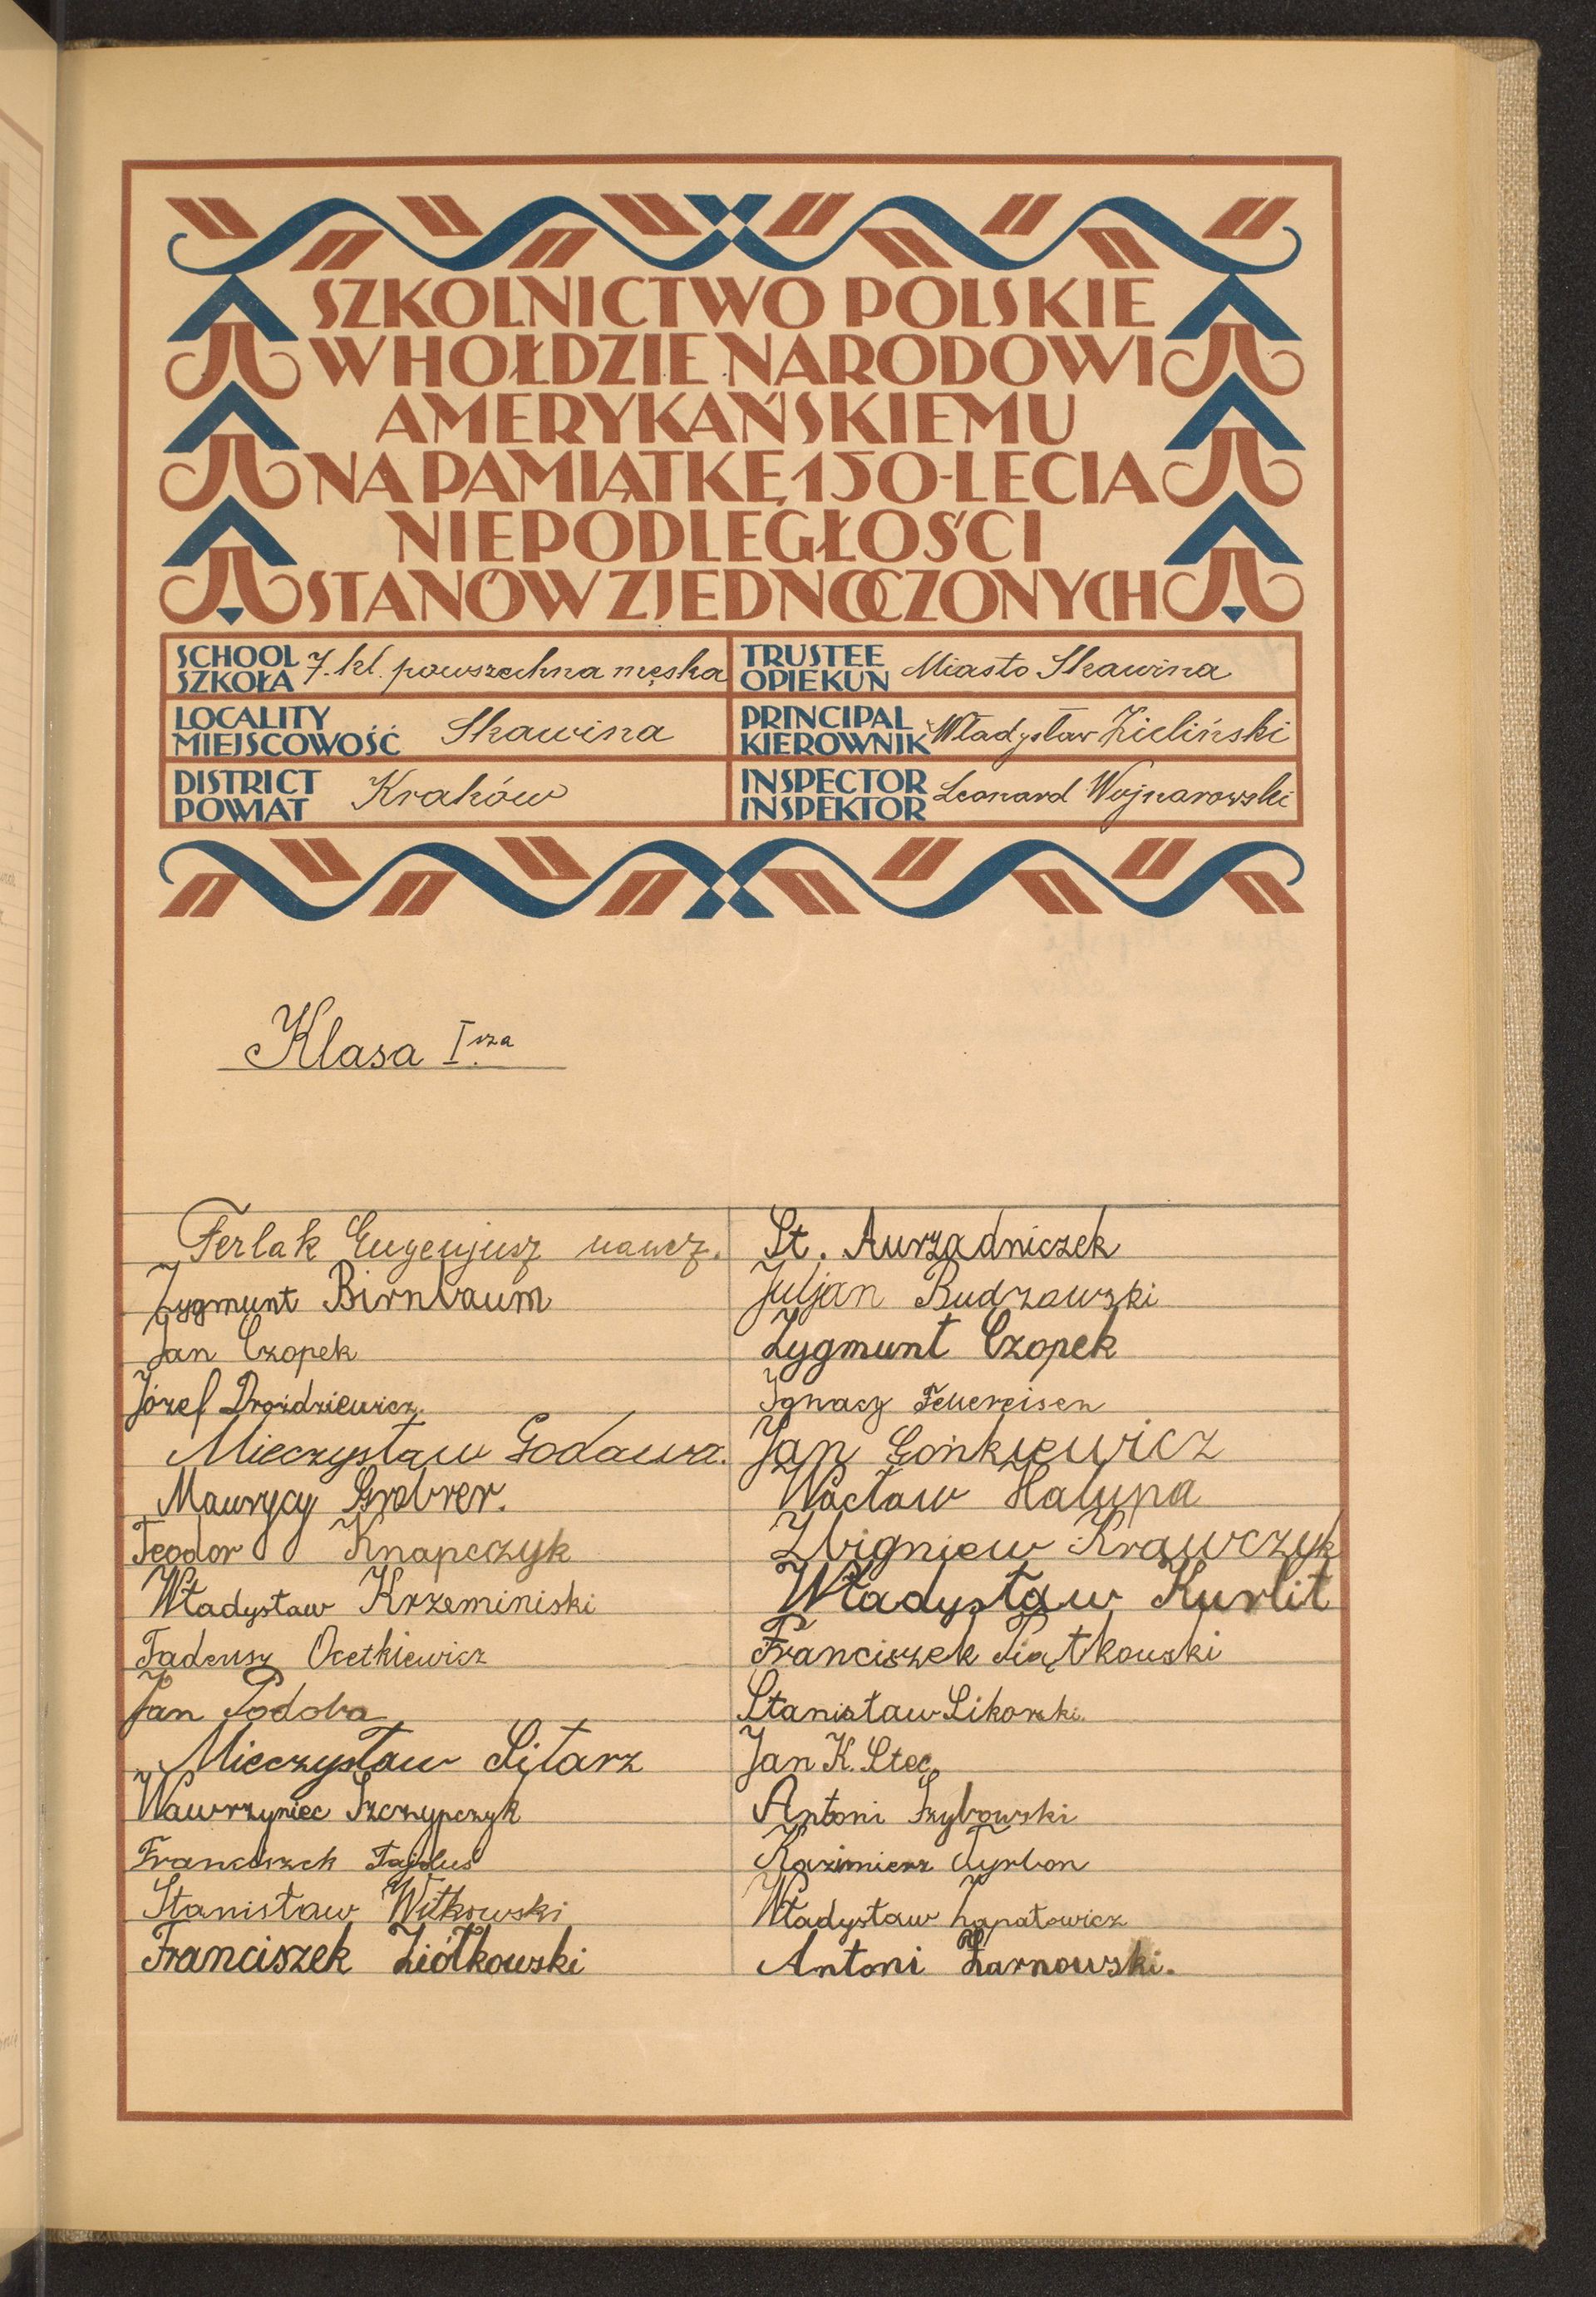 SZKOLNICTWO POLSKIE
W HOŁDZIE NARODOWI
AMERYKAŃSKIEMU
NA PAMIĄTKĘ 150-LECIA
NIEPODLEGŁOŚCI
STANÓW ZJEDNOCZONYCH
SCHOOL
SZKOŁA 7. kl. powszechna męska
TRUSTEE
OPIEKUN Miasto Skawina
LOCALITY
MIEJSCOWOŚĆ Skawina
PRINCIPAL
KIEROWNIK Władysław Zieliński
DISTRICT
POWIAT Kraków
INSPECTOR
INSPEKTOR Leonard Wojnarowski
Klasa I sza
Ferlak Eugenjusz naucz.
St. Aurzadniczek
Zygmunt Birnbaum
Juljan Budzowski
Jan Czopek
Zygmunt Czopek
Józef Droździewicz.
Ignacy Feuereisen
Mieczysław Godawa.
Jan Gońkiewicz
Maurycy Grobrer.
Wacław Hałupa
Teodor Knapczyk
Zbigniew Krawczyk
Władysław Krzeminiski
Władysław Kurlit
Tadeusz Ocetkiewicz
Franciszek Piątkowski
Jan Podoba
Stanisław Sikorski.
Mieczysław Sitarz
Jan K. Stec
Wawrzyniec Szczypczyk
Antoni Szybowski
Franciszek Tajduś
Kazimierz Tyrbon
Stanisław Witkowski
Władysław Łapatowicz
Franciszek Ziółkowski
Antoni Żarnowski.